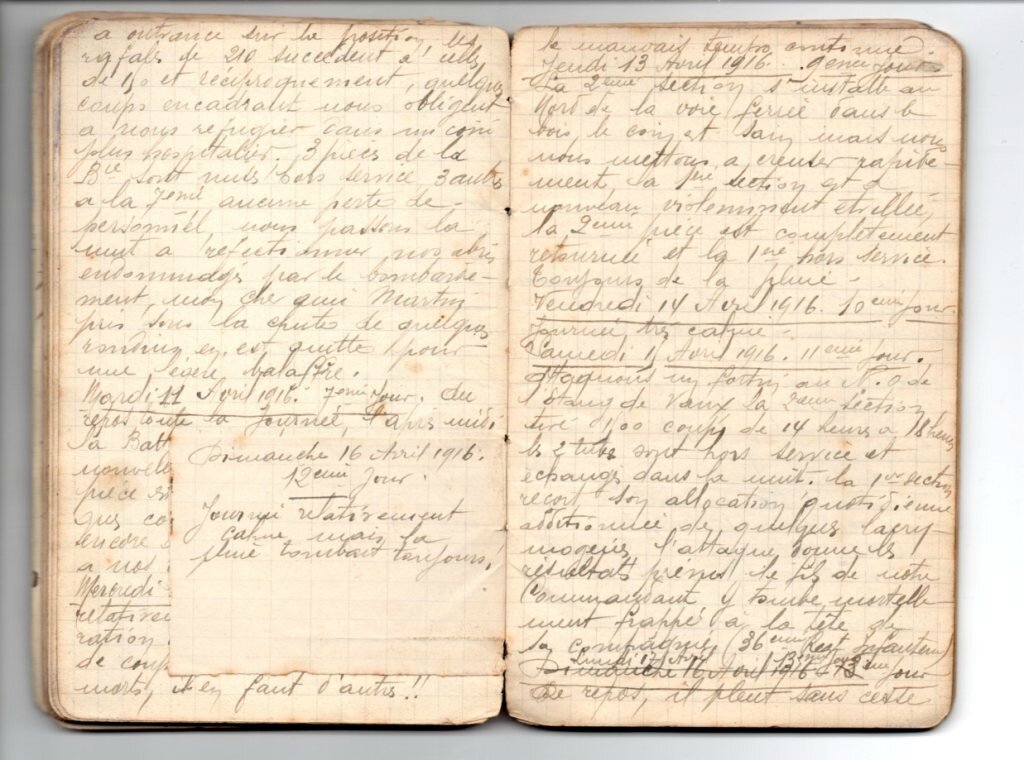 a outrance sur la position les
rafales de 210 succèdent a celles
de 150 et réciproquement, quelques
coups encadrant nous obligent
a nous réfugier dans un coin
plus hospitalier. 3 pièces de la
Bie sont mises hors service 3 autres
a la 7eme aucune perte de
personnel, nous passons la
nuit a réfectionner nos abris
endommagés par le bombarde-
ment, mon cher ami Martin
pris sous la chute de quelques
rondins en est quitte pour
une légère balafre.
Mardi 11 Avril 1916. 7eme Jour. Au
repos toute la Journée, l'après midi
la Batt
nouvelle
pièce
ques co
encore
a nos
Mercredi
relative
ration
de coup
morts, il en faut d'autres !!
Dimanche 16 Avril 1916.
12eme Jour.
Journée relativement
calme mais la
pluie tombait toujours.
le mauvais temps continue.
Jeudi 13 Avril 1916. 9eme Jour
La 2eme section s'installe au
Nord de la voie ferrée dans le
bois, le coin est sain mais nous
nous mettons a creuser rapide-
ment, la 1ere section est a
nouveau violemment étrillée,
la 2eme pièce est complètement
retournée et la 1ere hors service.
Toujours de la pluie -
Vendredi 14 Avril 1916. 10eme Jour.
Journée très calme -
Samedi 15 Avril 1916. 11eme Jour.
Attaquons un fortin au N.O de
l'étang de Vaux la 2eme Section
tire 100 coups de 14 heures a 18 heures
les 2 tubes sont hors service et
échangés dans la nuit. la 1ere section
reçoit son allocation quotidienne
additionnée de quelques lacry-
mogènes, l'attaque donne les
résultats prévus le fils de notre
Commandant y tombe mortelle-
ment frappé à la tête de
sa compagnie (36eme Regt Infanterie)
Lundi 17 Avril 13eme Jour
Dimanche 16 Avril 1916 13eme Jour
De repos, il pleut sans cesse